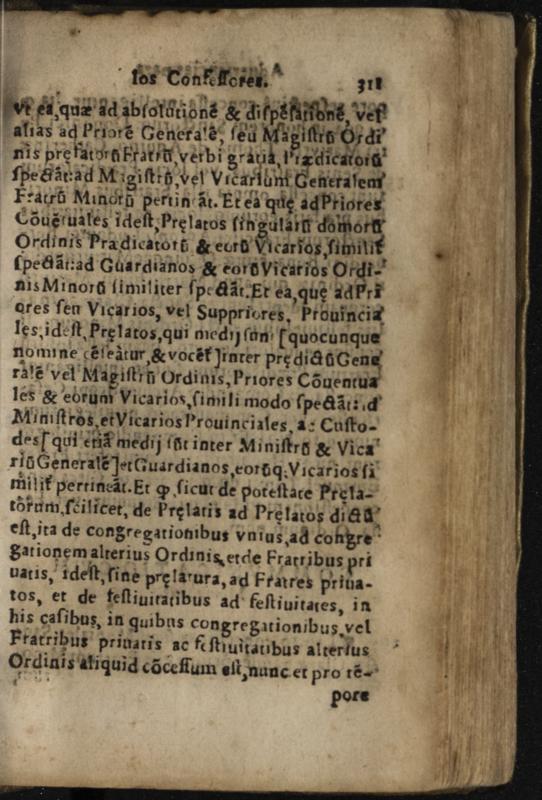 los Confessores. 318
vt ea, quæ ad absolutionē & dispēsationē, vel
alias ad Priorē Generalē, seu Magistrū Ordi
nis prętatorū Fratrū, verbi gratia, Prædicatorū
spectāt: ad Magistrū, vel Vicarium Generalem
Fratrū Minorū pertineāt. Et ea quę ad Priores
Cōuētuales idest, Pręlatos singularū domorū
Ordinis Prædicatorū & eorū Vicarios, similit
spectāt: ad Guardianos & eorū Vicarios Ordi-
nis Minorū similiter spectāt. Et ea, quę ad Pri
ores seu Vicarios, vel Suppriores, Prouincia
les, idest, Pręlatos, qui medij sunt [quocunque
nomine cēseātur, & vocēt] inter prędictū Gene
ralē vel Magistrū Ordinis, Priores Cōuentua
les & eorum Vicarios, simili modo spectāt: ad
Ministros, et Vicarios Prouinciales, ac Custo-
des [qui etiā medij sūt inter Ministrū & Vica
riū Generalē] et Guardianos, eorūq; Vicarios si
milit pertineāt. Et ꝙ, sicut de potestate Pręla-
torum, scilicet, de Pręlatis ad Pręlatos dictū
est, ita de congregationibus vnius, ad congre
gationem alterius Ordinis, et de Fratribus pri
uatis, idest, sine pręlatura, ad Fratres priua-
tos, et de festiuitatibus ad festiuitates, in
his casibus, in quibus congregationibus, vel
Fratribus priuatis ac festiuitatibus alterius
Ordinis aliquid cōcessum est, nunc et pro tē-
pore